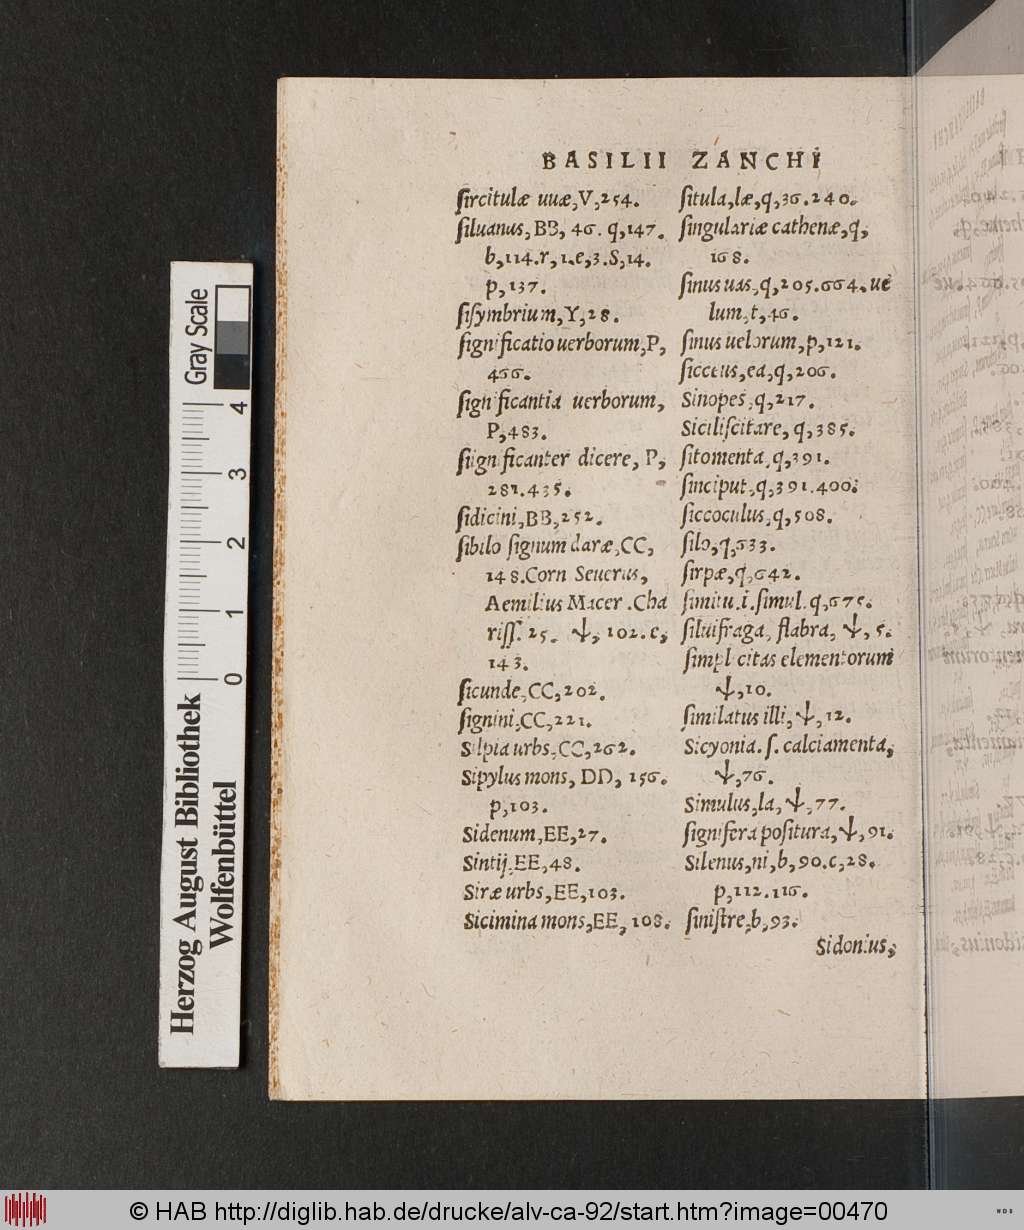 BASILII ZANCHI
ſircitulæ uuæ,V,254.
ſiluanus,BB, 46. q,147.
b,114.r,1.e,3.S,14.
p,137.
ſiſymbrium,Y,28.
ſignificatio uerborum,P,
466.
ſignificantia uerborum,
P,483.
ſiignificanter dicere, P,
281.435.
ſidicini,BB,252.
ſibilo ſignum daræ,CC,
148.Corn Seuerus,
Aemilius Macer .Cha
riſſ. 25. Ψ, 102.c,
143.
ſicunde,CC,202.
ſignini,CC,221.
Silpia urbs,CC,262.
Sipylus mons, DD, 156.
p,103.
Sidenum,EE,27.
Sintij,EE,48.
Siræ urbs,EE,103.
Sicimina mons,EE, 108.
ſitula,læ,q,36.240.
ſingulariæ cathenæ,q,
168.
ſinus uas,q,205.664.ue
lum,t,46.
ſinus uelorum,p,121.
ſicceus,ea,q,206.
Sinopes,q,217.
Siciliſcitare, q,385.
ſitomenta,q,391.
ſinciput,q,391.400.
ſiccoculus,q,508.
ſilo,q,633.
ſirpæ,q,642.
ſimitu.i.ſimul.q,675.
ſiluifraga, flabra, Ψ, 5.
ſimpl citas elementorum
Ψ,10.
ſimilatus illi,Ψ,12.
Sicyonia.ſ.calciamenta,
Ψ,76.
Simulus,la,Ψ,77.
ſignifera poſitura,Ψ,91.
Silenus,ni,b,90.c,28.
p,112.116.
ſiniſtre,b,93.
Sidonius,
Gray Scale
4
3
2
1
0
Herzog August Bibliothek
Wolfenbüttel
© HAB http://diglib.hab.de/drucke/alv-ca-92/start.htm?image=00470